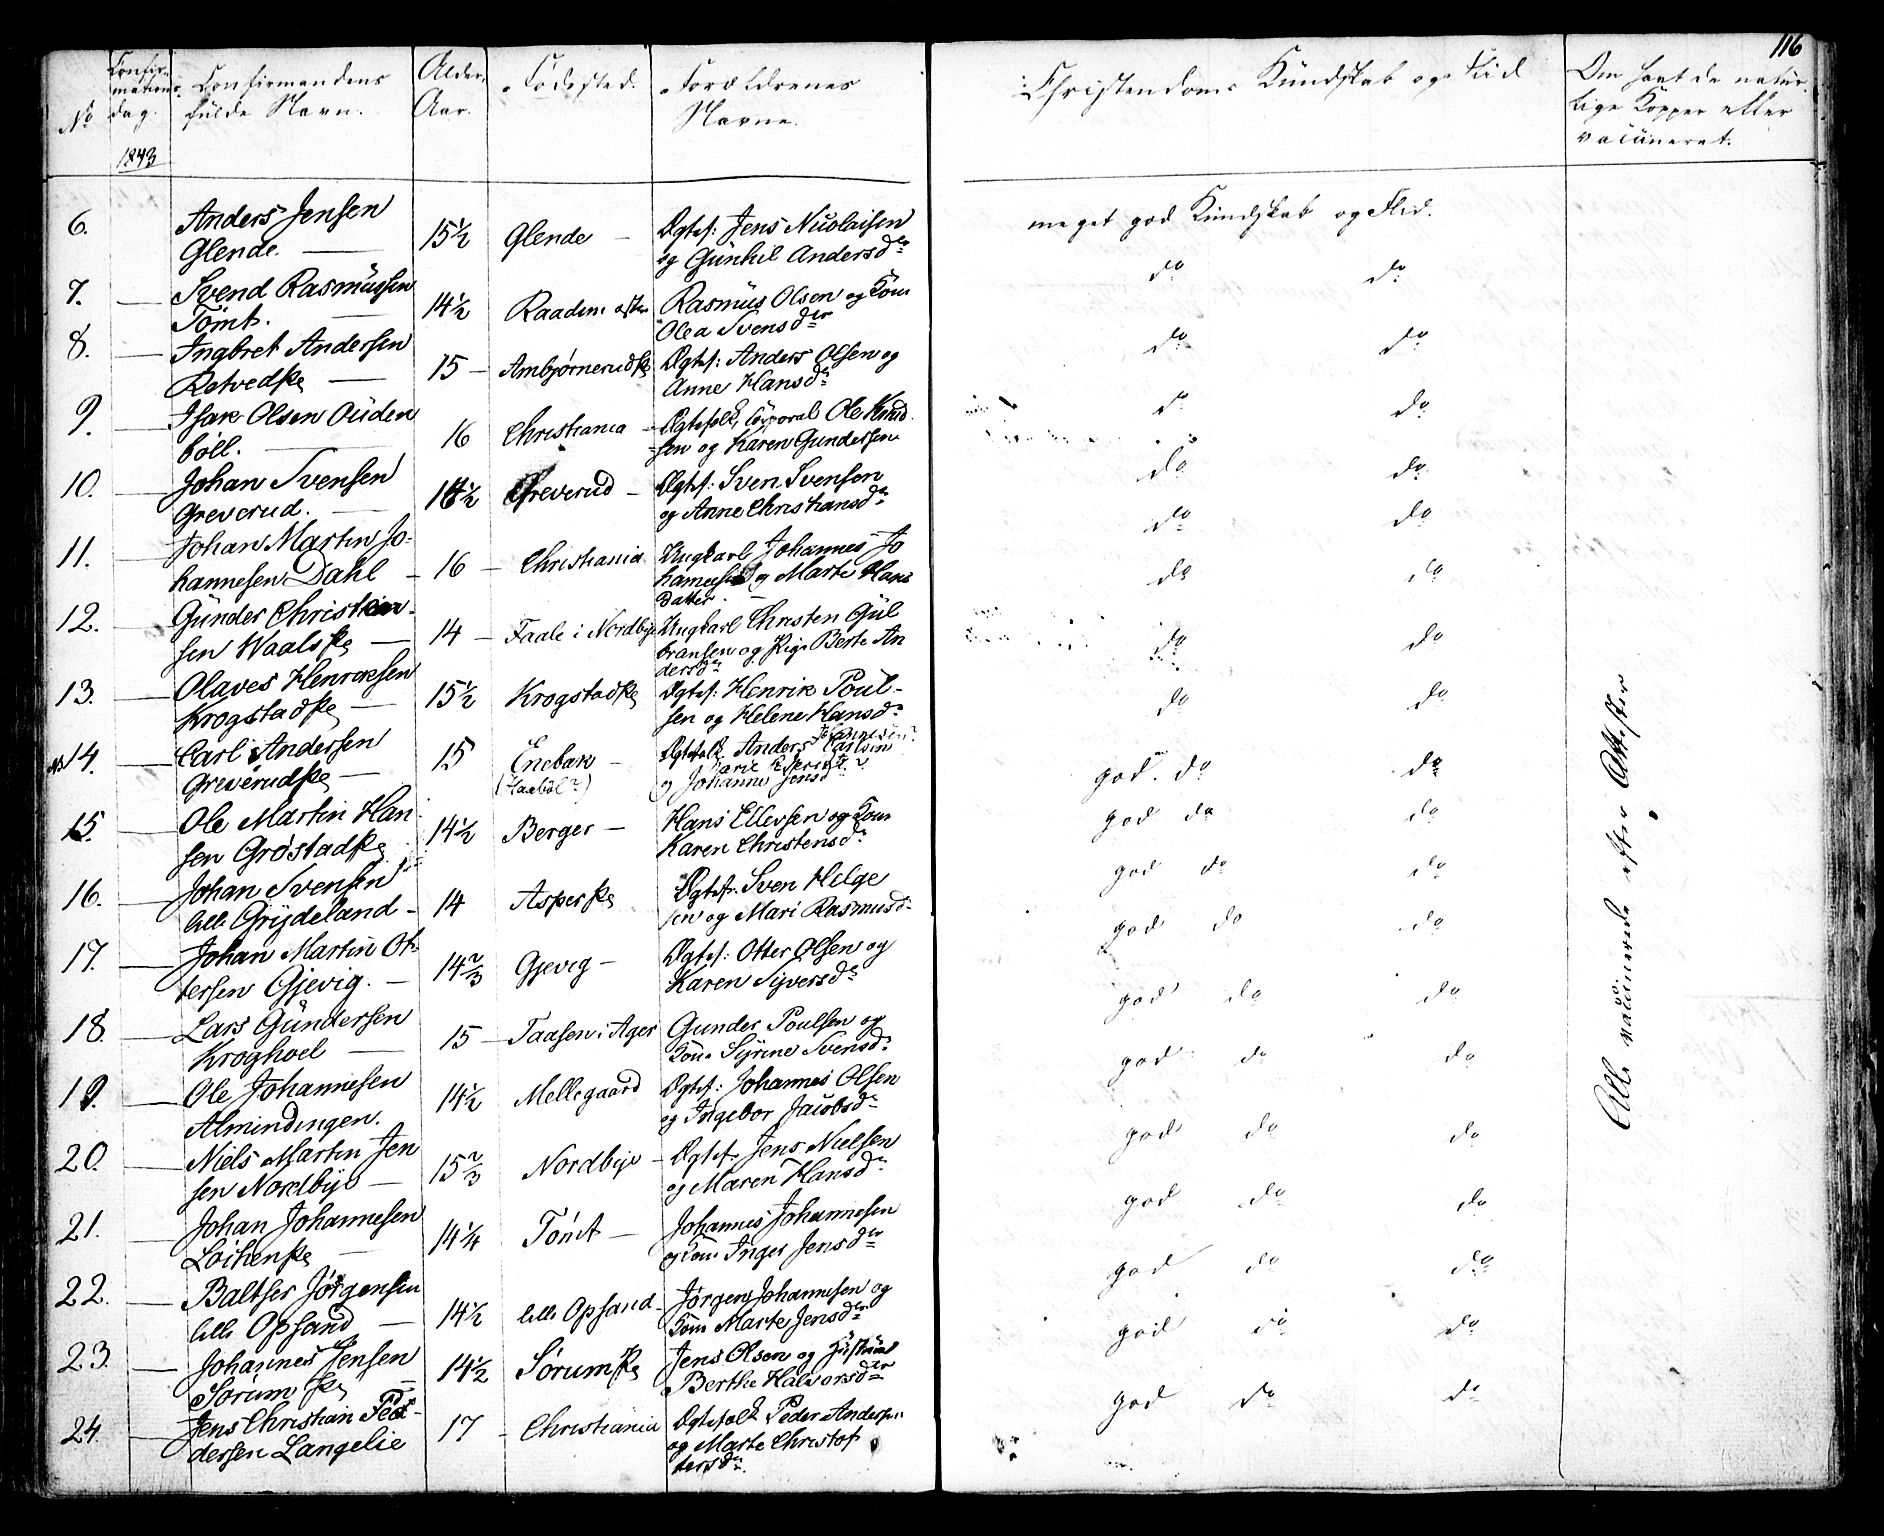 116
No
Confir-
mations-
dag.
1843
Confirmandens
fulde Navn.
Alder.
Aar.
Fødested.
Forældrenes
Navne.
Christendoms Kundskab og Flid
Om havt de natur-
lige Kopper eller
vaccineret.
6.
Anders Jensen
Glende.
15½
Glende
Ægtef: Jens Nicolaisen
og Gunhil Andersdr
meget god Kundskab og Flid.
7.
Svend Rasmussen
Tomt.
14½
Raaden
Rasmus Olsen og Kone
Olea Svensdr
do do
8.
Ingbret Andersen
Retvedske
15
Ambjørnerudske
Ægtef: Anders Olsen og
Anne Hansdr
do do
9.
Isak Olsen Ouden
böll.
16
Christiania
Ægtefolk, Corporal Ole Knud
sen og Karen Gundersen
do do
10.
Johan Svensen
Greverud.
½
Greverud
Ægtef: Sven Svensen
og Anne Christiansdr
do do
11.
Johan Martin Jo-
hannesen Dahl
16
Christiania
Ungkarl Johannes Jo
hannesen og Marte Hans
datter.
do do
12.
Gunder Christian-
sen Waalske
14
Faale i Nordbye
Ungkarl Christen Gul
bransen og Pige Berte An
dersdr
do do
13.
Olaves Henriksen
Krogstadske
15½
Krogstadske
Ægtef: Henrik Poul-
sen og Helene Hansdr
do do
14.
Carl Andersen
Greverudske
15
Enebak
Ægtefolk Anders Carlsen
og Johanne Jensdr
god do do
15.
Ole Martin Han
sen Grøstadske
14½
Berger
Hans Ellevsen og Kone
Karen Christensdr
god do do
16.
Johan Svensen
lille Grydeland
14
Asperske
Ægtef. Sven Helge
sen og Mari Rasmusdr
god do do
17.
Johan Martin Ot-
tersen Gjevig.
14⅔
Gjevig
Ægtef: Otter Olsen og
Karen Siversdr
god do do
18.
Lars Gundersen
Kroghoel
15
Taasen i Ager
Gunder Poulsen og
Kone Syrine Svensdr
god do do
19.
Ole Johannesen
Almindingen.
14½
Mellegaard
Ægtef: Johannes Olsen
og Ingebor Jacobsdr
god do do
20.
Niels Martin Jen
sen Nordbye
15⅔
Nordbye
Ægtef. Jens Nielsen
og Maren Hansdr
god do do
21.
Johan Johannesen
Loihenske
14¼
Tomt
Johannes Johannesen
og Kone Inger Jensdr
god do do
22.
Baltser Jørgensen
lille Opsand
14½
lille Opsand
Jørgen Johannesen og
Kone Marte Jensdr
god do do
23.
Johannes Jensen
Sørum ske
14½
Sørumske
Jens Olsen og Hustrue
Berthe Halvorsdr
god do do
24.
Jens Christian Pe-
dersen Langelie
17
Christiania
Ægtefolk Peder Andersen
og Marte Christof
fersdr
god do do
Alle vaccinerede efter Attester